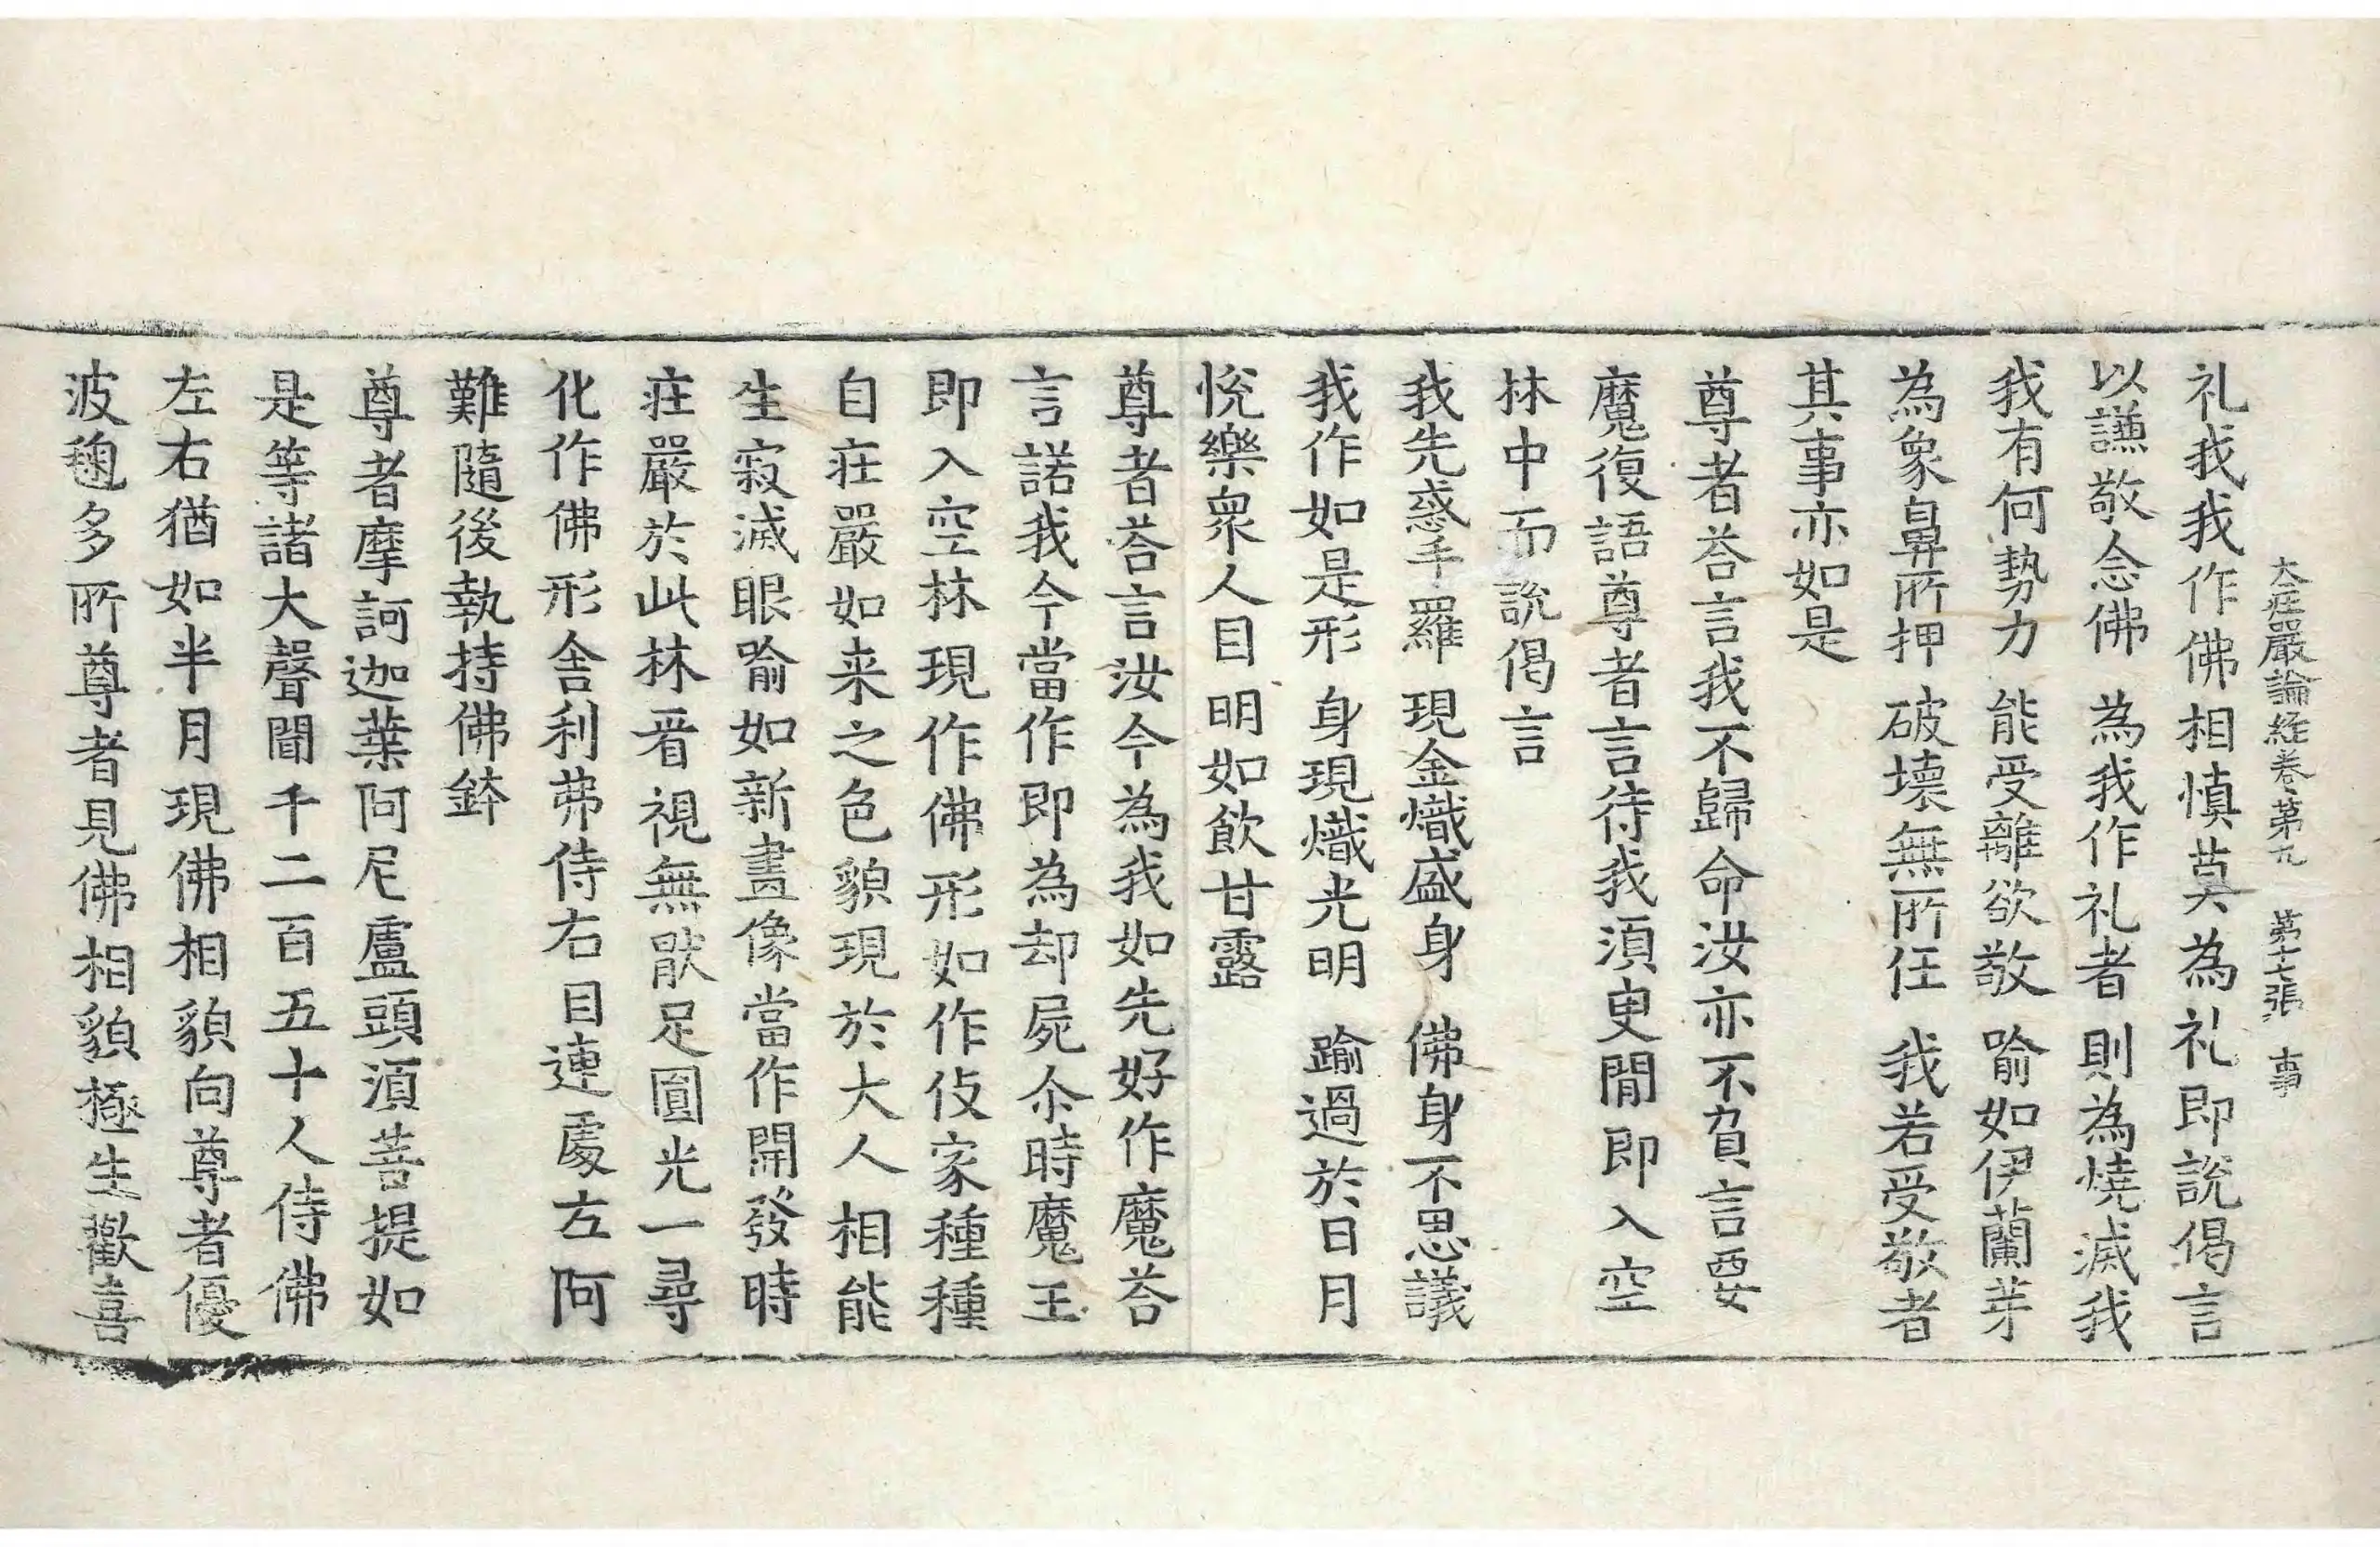 大庄嚴論經卷第九 第十七張 事
礼我我作佛相慎莫為礼即說偈言
以謙敬念佛 為我作礼者 則為燒滅我
我有何勢力 能受離欲敬 喻如伊蘭芽
為象鼻所押 破壞無所任 我若受敬者
其事亦如是
尊者荅言我不歸命汝亦不負言要
魔復語尊者言待我須臾閒即入空
林中而說偈言
我先惑手羅 現金熾盛身 佛身不思議
我作如是形 身現熾光明 踰過於日月
悅樂衆人目 明如飲甘露
尊者荅言汝今為我如先好作魔荅
言諾我今當作即為却屍尒時魔王
即入空林現作佛形如作伎家種種
自庄嚴如来之色貌現於大人相能
生寂滅眼喻如新畫像當作開發時
庄嚴於此林㸔視無猒足圓光一尋
化作佛形舍利弗侍右目連處左阿
難隨後執持佛鉢
尊者摩訶迦葉阿尼盧頭須菩提如
是等諸大聲聞千二百五十人侍佛
左右猶如半月現佛相貌向尊者優
波毱多所尊者見佛相貌極生歡喜